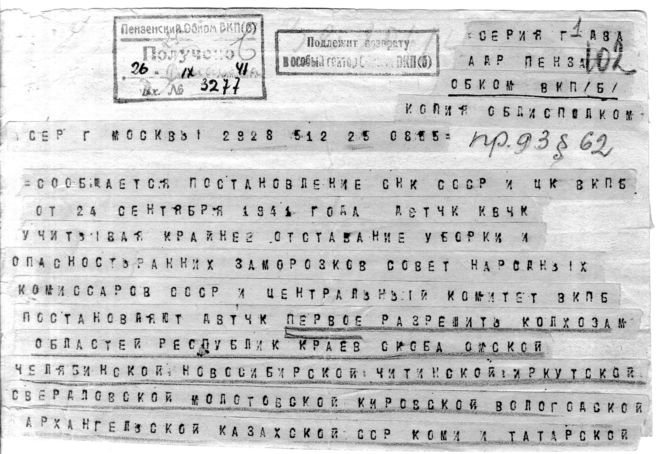 Пензенский Обком ВКП(б)
Получено
26 - IX 41
вх. № 3277
Подлежит возврату
в особый сектор ВКП(б)
=СЕРИЯ Г 1 АЗА
ААР ПЕНЗА 102
ОБКОМ ВКП/Б/
КОПИЯ ОБЛИСПОЛКОМ
СЕР Г МОСКВЫ 2928 512 25 0855=
пр. 93 § 62
=СООБЩАЕТСЯ ПОСТАНОВЛЕНИЕ СНК СССР И ЦК ВКПБ
ОТ 24 СЕНТЯБРЯ 1941 ГОДА ДВТЧК КВЧК
УЧИТЫВАЯ КРАЙНЕЕ ОТСТАВАНИЕ УБОРКИ И
ОПАСНОСТЬ РАННИХ ЗАМОРОЗКОВ СОВЕТ НАРОДНЫХ
КОМИССАРОВ СССР И ЦЕНТРАЛЬНЫЙ КОМИТЕТ ВКПБ
ПОСТАНОВЛЯЮТ ДВТЧК ПЕРВОЕ РАЗРЕШИТЬ КОЛХОЗАМ
ОБЛАСТЕЙ РЕСПУБЛИК КРАЕВ СКОБА ОМСКОЙ
ЧЕЛЯБИНСКОЙ НОВОСИБИРСКОЙ ЧИТИНСКОЙ ИРКУТСКОЙ
СВЕРДЛОВСКОЙ МОЛОТОВСКОЙ КИРОВСКОЙ ВОЛОГОДСКОЙ
АРХАНГЕЛЬСКОЙ КАЗАХСКОЙ ССР КОМИ И ТАТАРСКОЙ